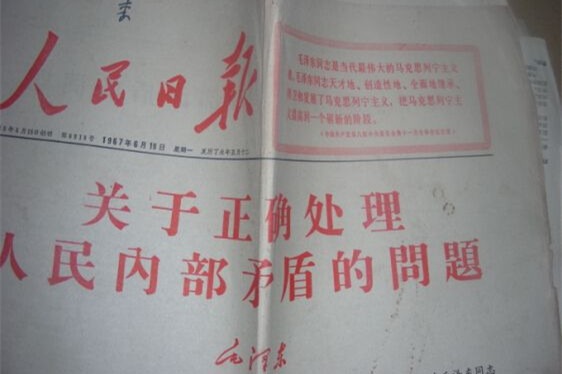 人民日報
毛泽东同志是当代最伟大的马克思列宁主义
者。毛泽东同志天才地、创造性地、全面地继承、
捍卫和发展了马克思列宁主义，把马克思列宁主
义提高到一个崭新的阶段。
1967年6月19日 星期一 夏历丁未年五月十二
关于正确处理
人民内部矛盾的問題
毛泽东
毛泽东同志